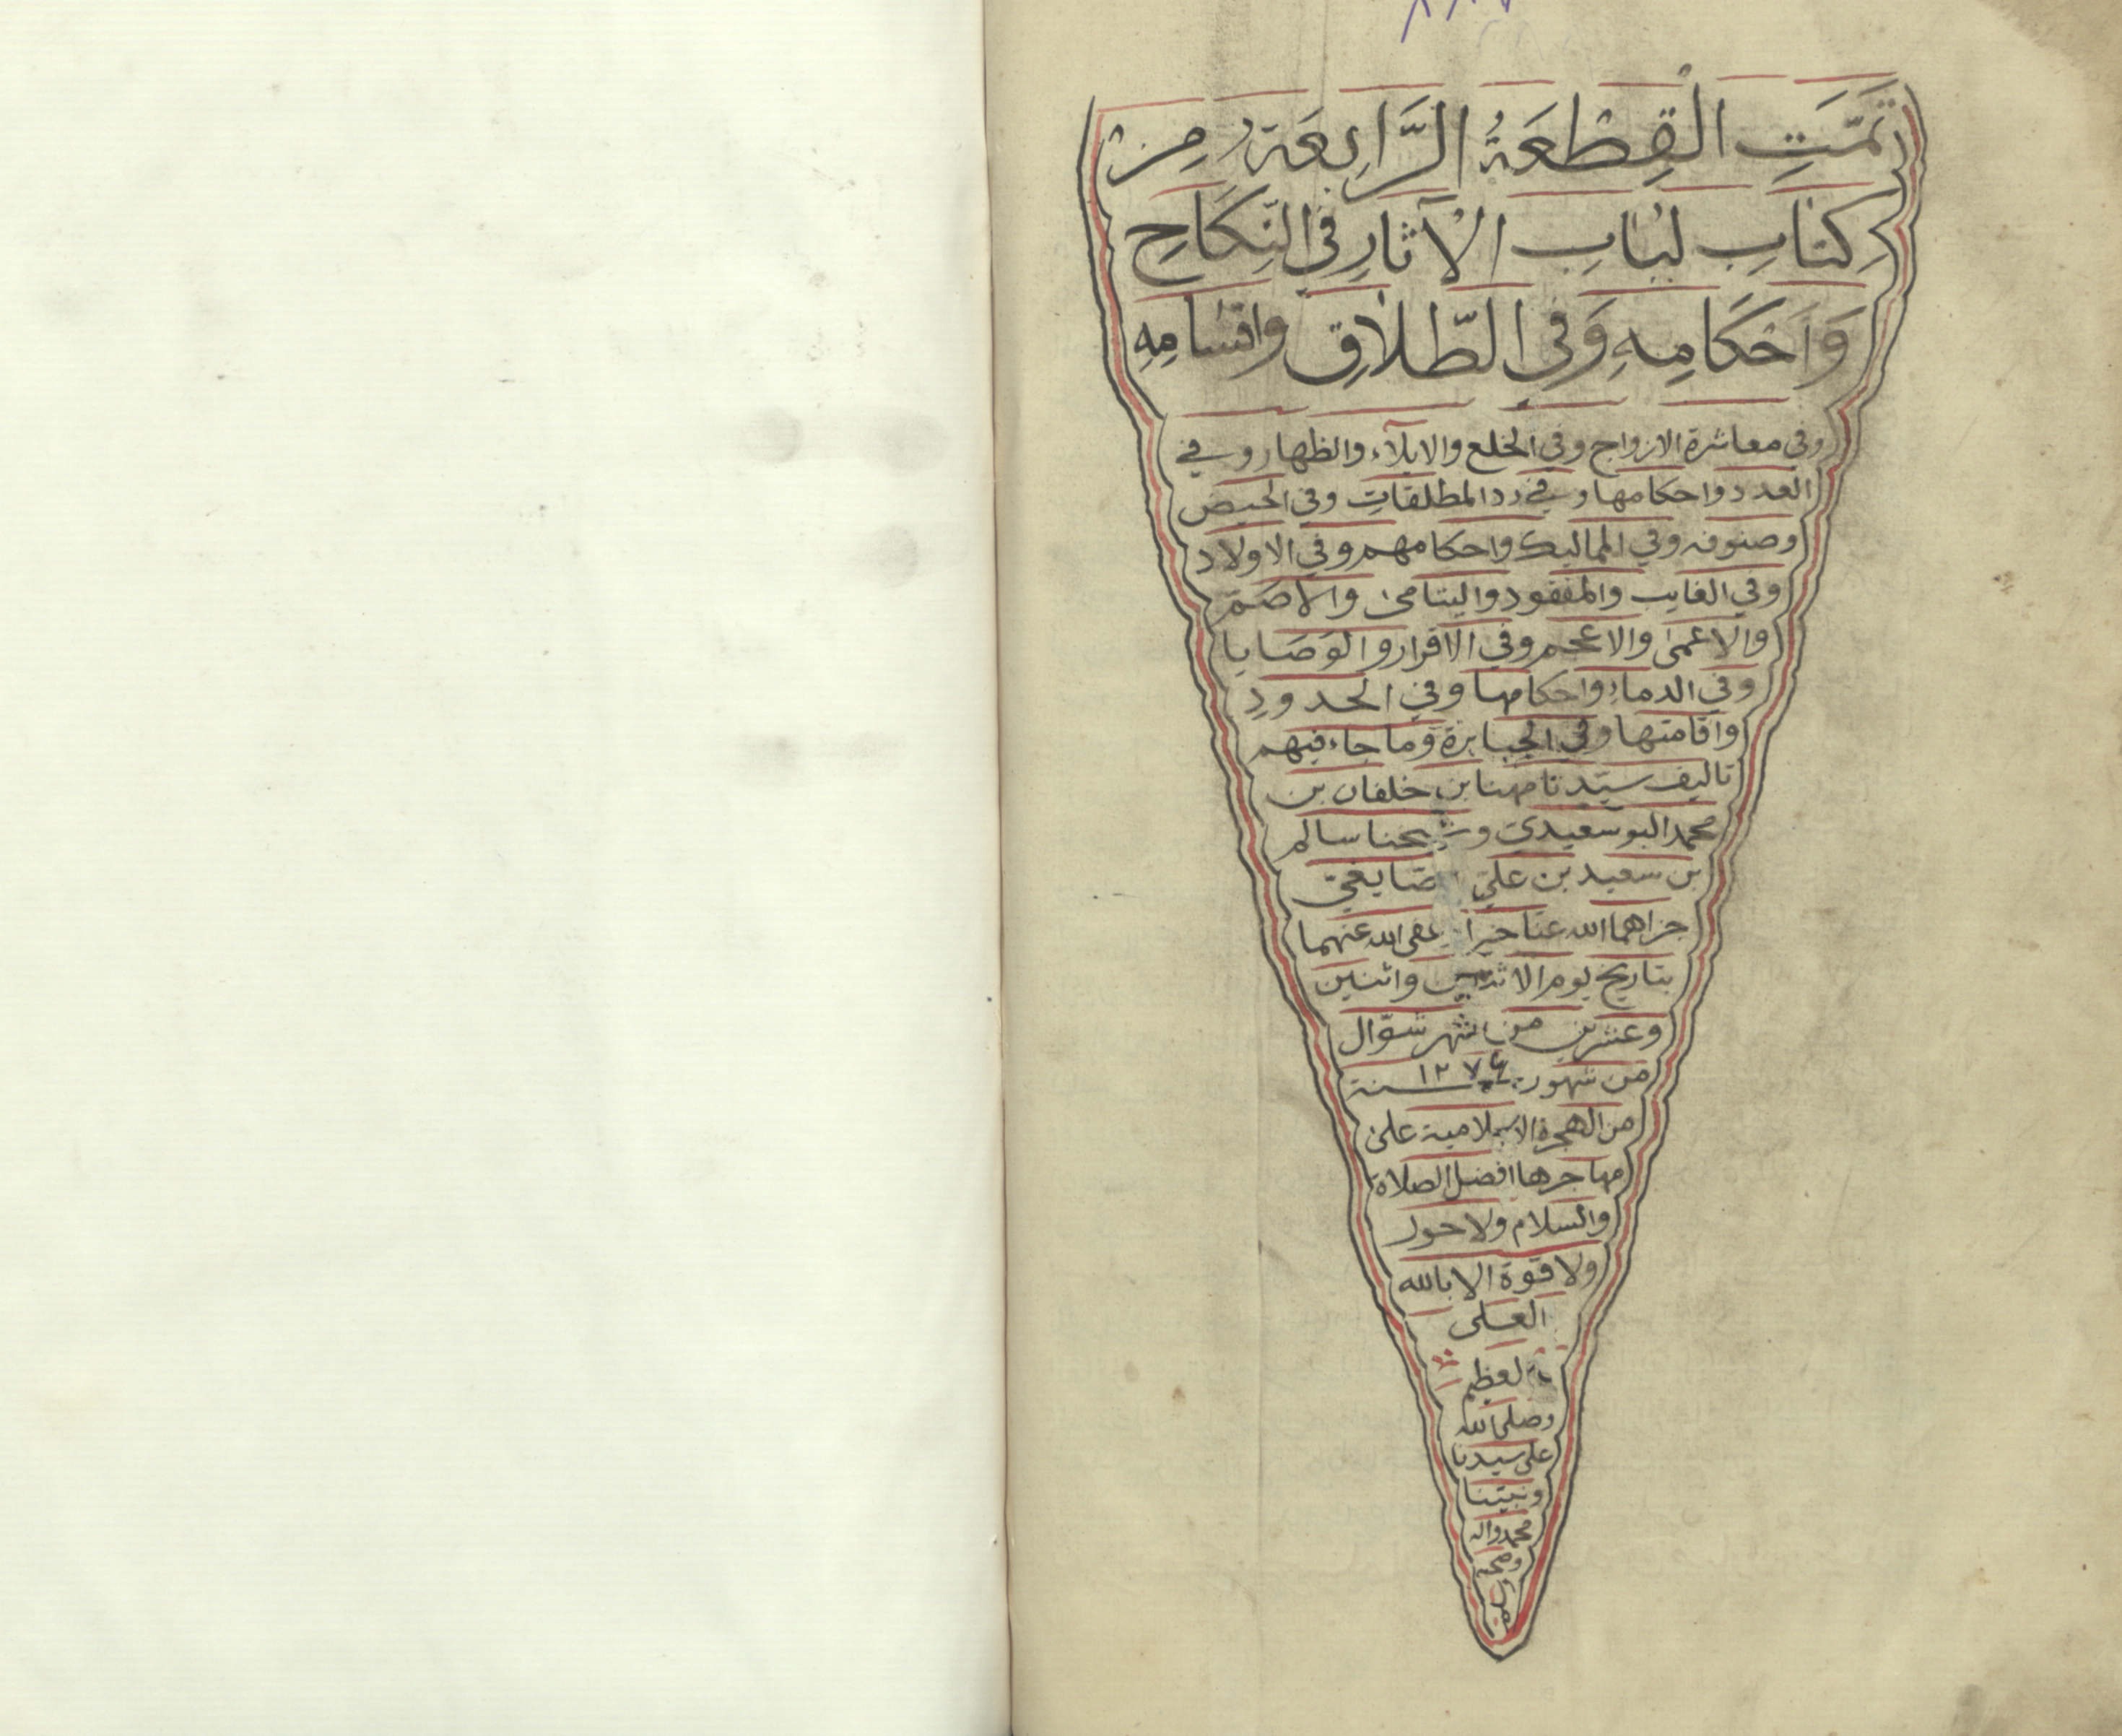 تَمَّتِ الْقِطْعَةُ الرَّابِعَةُ مِنْ
كِتَابِ لُبَابِ الْآثَارِ فِي النِّكَاحِ
وَاَحْكَامِهِ وَفِي الطَّلَاقِ واقسَامِهِ
وفي معاشرة الازواج وفي الخلع والايلآء والظهار وفي
العدد واحكامها وفي رد المطلقاتِ وفي الحيض
وصنوفه وفي المماليك واحكامهم وفي الاولاد
وفي الغايب والمفقود واليتامى والاصَمّ
والاعمى والاعجم وفي الاقرار والوَصَايا
وفي الدماءِ واحكامها وفي الحدودِ
واقامتها وفي الجبابرة وما جاء فيهم
تاليف سيّدنا مهنا بن خلفان بن
محمد البوسعيدي وشيخنا سالم
بن سعيد بن علي صَايغيّ
جزاهما الله عنا خيرا عفى الله عنهما
بتاريخ يوم الاثنين واثنين
وعشرين من شهر شوّال
من شهور سنة ١٢٧٤
من الهجرة الاسلامية على
مهاجرها افضل الصلاة
والسلام ولا حول
ولا قوة الا بالله
العلى
العظيم
وصلى الله
على سيدنا
ونبيّنا
محمد واله
وصحبه